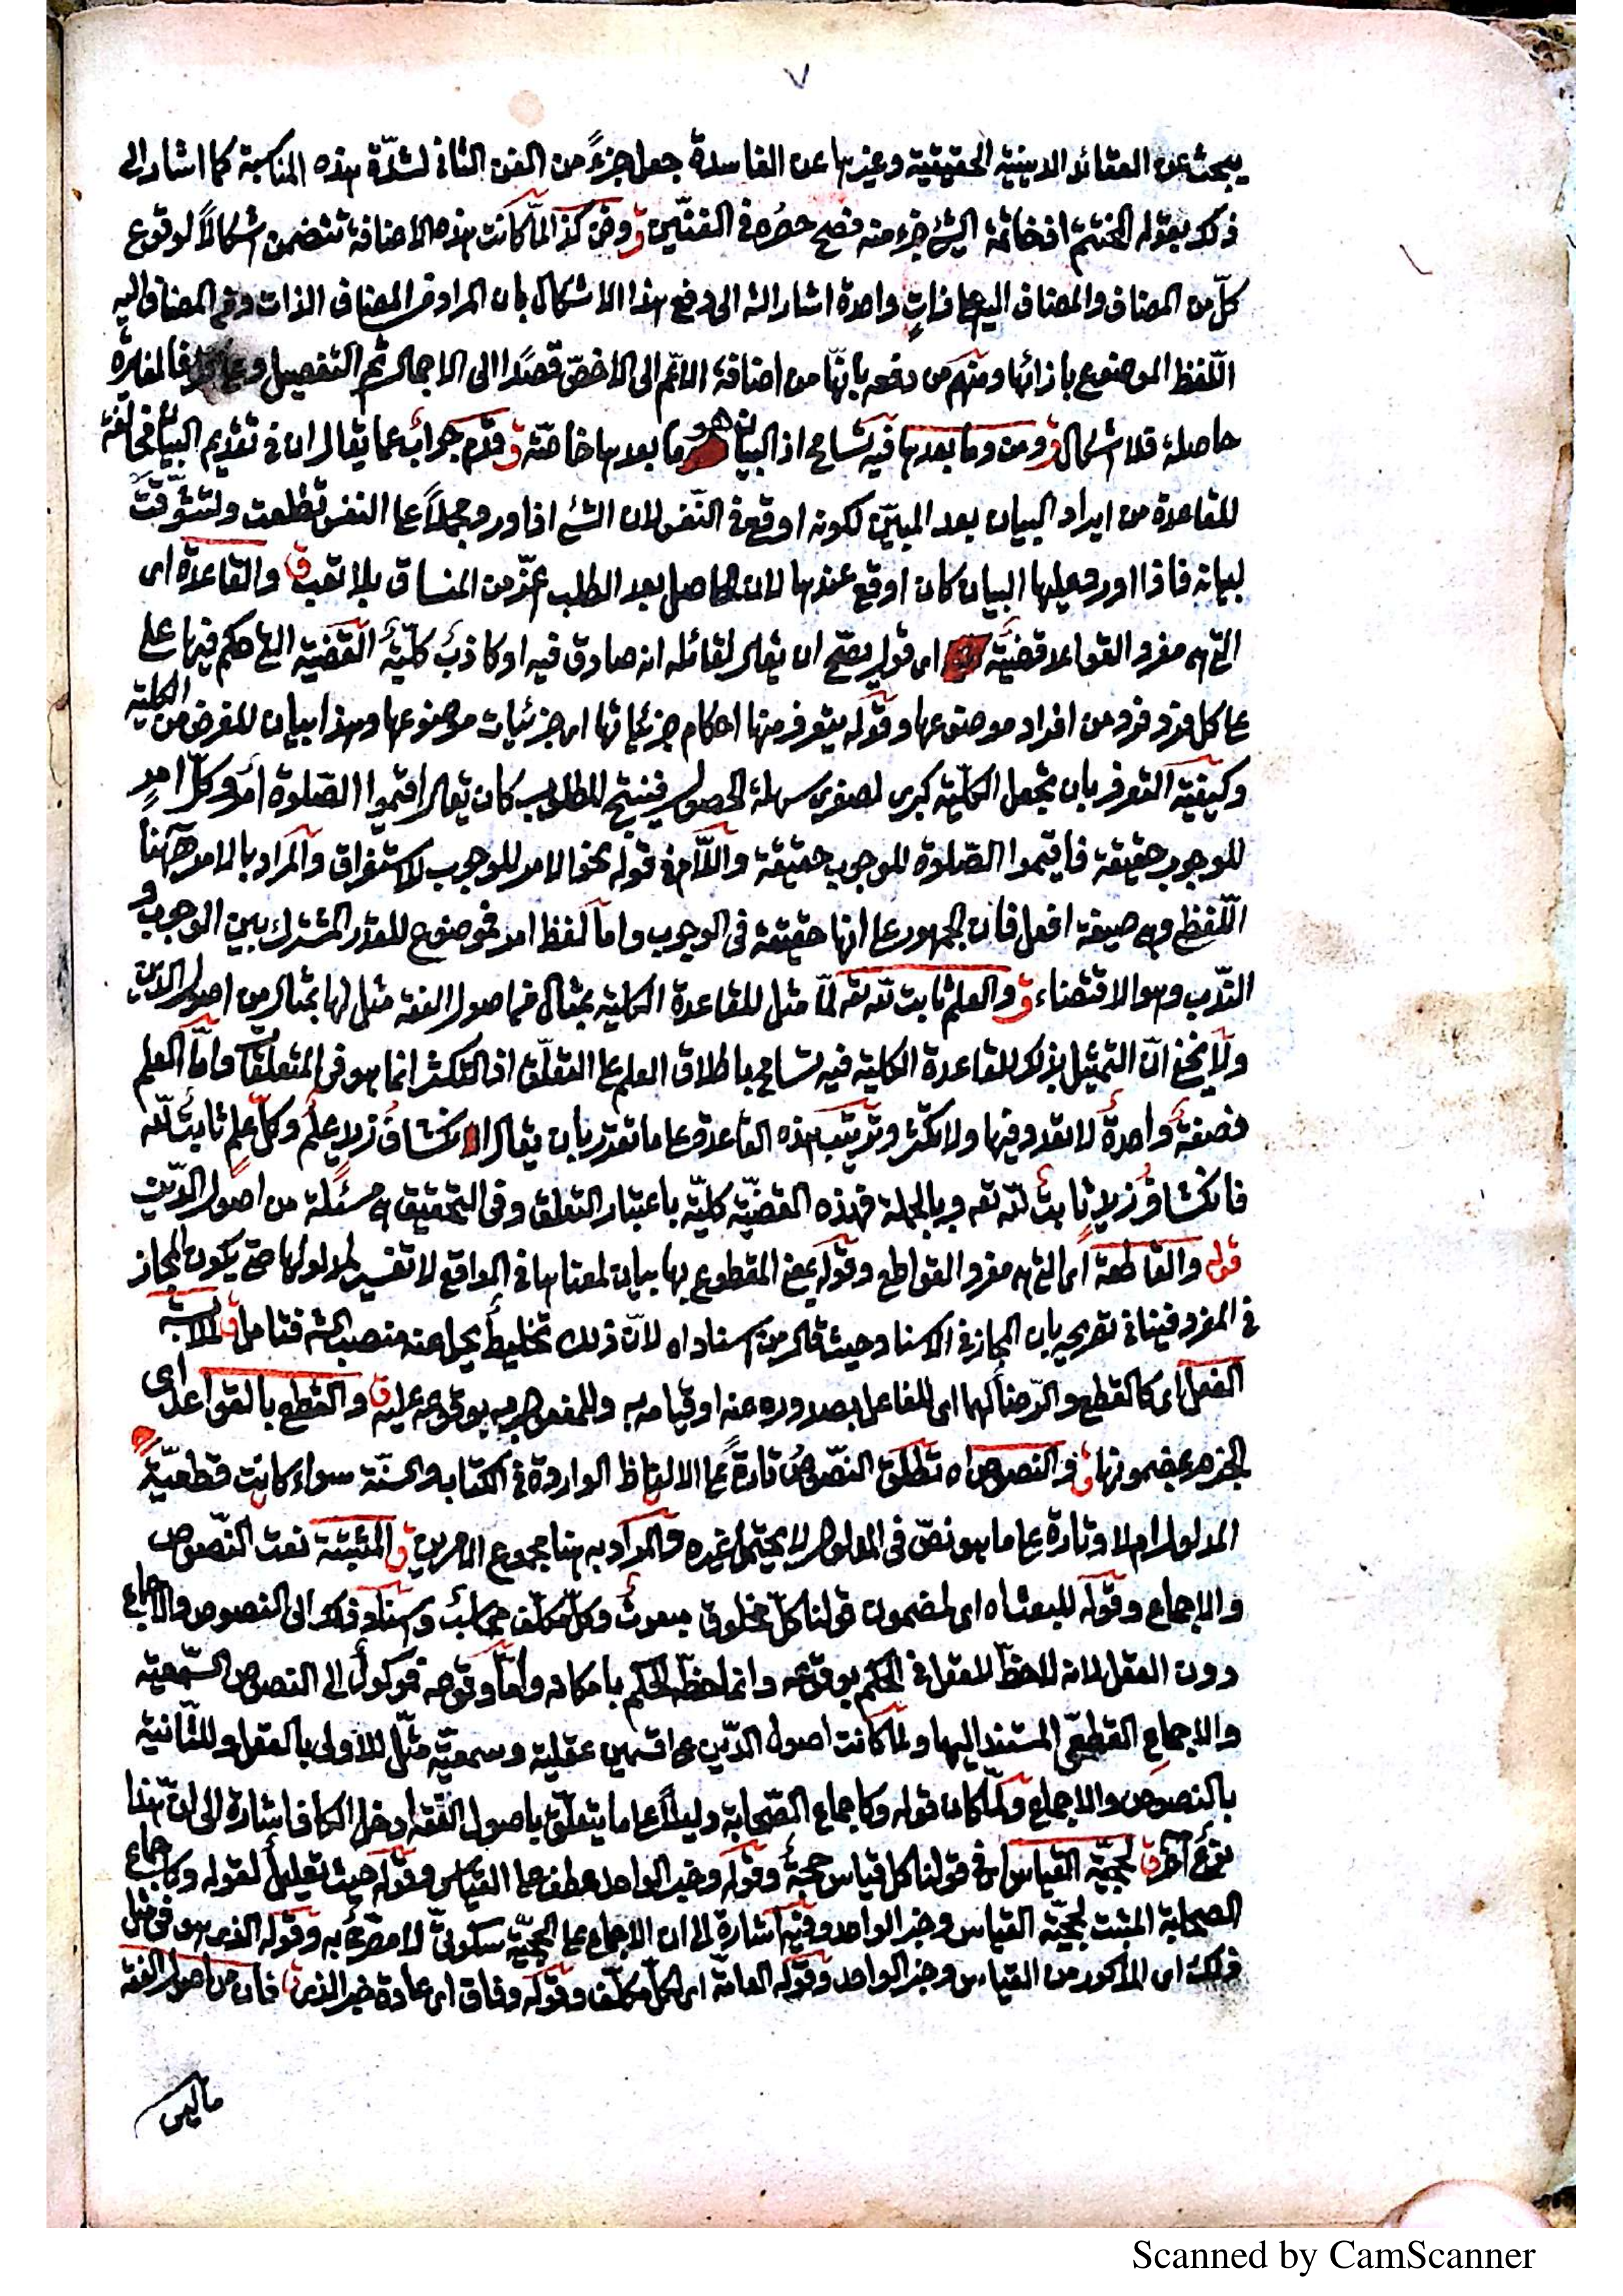 ٧
يبحث عن العقائد الدينية الحقيقية وغيرها عن الفاسدة جعل جزءً من الفن الثاني لشدّة هذه المناسبة كما اشار الى
ذلك بقوله المختتم اذ خاتمة الشئ جزء منه فصح حصره في الفنّين ق وفن كذا لمّا كانت هذه الاضافة تتضمن اشكالاً لوقوع
كلّ من المضاف والمضاف اليه على ذاتٍ واحدة اشار الى دفع هذا الاشكال بان المراد من المضاف الذات ومن المضاف اليه
اللّفظ الموضوع بازائها ومنهم من دفعه بانّها من اضافة الاعّم الى الاخصّ قصدًا الى الاجمال ثم التفصيل فالمغايرة
حاصلة فلا اشكال ق ومن وما بعدها فيه تسامح اذ البيان هو ما بعدها خاصّة ق قدم جوابٌ عما يقال ان في تقديم البيان مخالفة
للقاعدة من ايراد البيان بعد المبيّن لكونه اوقع في النّفس لان الشئ اذا ورد مجملاً على النفس تطلعت وتشوّقت
لبيانه فاذا اورد عليها البيان كان اوقع عندها لان الحاصل بعد الطلب اعزّ من المنساق بلا تعب ق والقاعدة اى
التي هي مفرد القواعد قضيّة اى قول يصحّ ان يقال لقائله انه صادق فيه او كاذبٌ كلّيّة القضية التي حكم فيها على
على كل فرد فرد من افراد موضوعها وقوله يتعرف منها احكام جزئياتها اى جزئيات موضوعها وهذا بيان للغرض من الكلية
وكيفية التعرف بان تجعل الكلّية كبرى لصغرى سهلة الحصول فينتج المطلوب كان يقال اقيموا الصّلوة امرٌ وكلّ امرٍ
للوجوب حقيقة فاقيموا الصّلوة للوجوب حقيقة واللّام في قوله نحو الامر للوجوب للاستغراق والمراد بالامر هٰهنا
اللّفظ وهي صيغة افعل فان الجمهور على انها حقيقة في الوجوب واما لفظ امر فموضوع للقدر المشترك بين الوجوب و
النّدب وهو الاقتضاء ق والعلم ثابت لله تعالى لمّا مثل للقاعدة الكلية بمثال من اصول الفقه مثل لها بمثال من اصول الدين
ولا يخفى انّ التمثيل بذلك للقاعدة الكلية فيه تسامح باطلاق العلم على التعلّق اذ التكثر انما هو في المتعلّق وامّا العلم
فصفة واحدة لا تعدد فيها ولا تكثّر وترتيب هذه القاعدة على ما تقدر بان يقال انكشاف زيد علم وكلّ علمٍ ثابت للّه
فانكشاف زيد ثابت للّه تعه وبالجملة فهذه القضيّة كليّة باعتبار التعلق وفي التحقيق هي مسئلة من اصول الدّين
قوله والقاطعة اى التي هي مفرد القواطع وقوله بمعنى المقطوع بها بيان لمعناها في الواقع لا تفسير لمدلولها حتى يكون المجاز
في المفرد فينافي تصريحه بان المجاز في الاسناد حيث قال من اسناد اه لانّ ذلك تخليط يجل عنه منصب الشه فتامل ق لملابسة
الفعل اى كالقطع والرّضا لهما اى للفاعل بصدوره عنه او قيامه به وللمفعول به بوقوعه عليه ق والقطع بالقواعد اى
الجزم بمضمونها ق والنصوص اه تطلق النّصوص تارةً على الالفاظ الواردة في الكتاب والسنّة سواء كانت قطعيّة
المدلول ام لا وتارة على ما هو نصّ في المدلول لا يحتمل غيره والمراد به هنا مجموع الامرين ق المثبتة نعت النّصوص
والاجماع وقوله للبعث اه اى لمضمون قولنا كلّ مخلوق مبعوثٌ وكلّ مكلّف محاسبٌ واسناد ذلك الى النصوص والاجماع
دون العقل لانه لاحظّ للعقل في الحكم بوقوعه وانما حظّه الحكم بامكانه وامّا وقوعه فموكولٌ الى النصوص السّمعية
والاجماع القطعّى المستند اليها ولما كانت اصول الدّين على قسمين عقلية وسمعيّة مثّل للاولى بالعقل وللثّانية
بالنصوص والاجماع ولمّا كان قوله وكاجماع الصّحابة دليلاً على ما يتعلّق باصول الفقه ادخل الكاف اشارة الى انّ هذا
نوعٌ آخر ق لحجّية القياس اى في قولنا كل قياس حجةٌ وقوله وخبر الواحد عطف على القياس وقوله حيث تعليل لقوله وكاجماع
الصحابة المثبت لحجّية القياس وخبر الواحد وفيه اشارة الى ان الاجماع على الحجّيّة سكوتىّ لا مصرّحٌ به وقوله الذى هو في مثل
ذلك اى المذكور من القياس وخبر الواحد وقوله العامّة اى لكلّ مكلّف وقوله وفاق اى عادة خبر الذى ق فان من اصول الفقه
ما ليس
Scanned by CamScanner